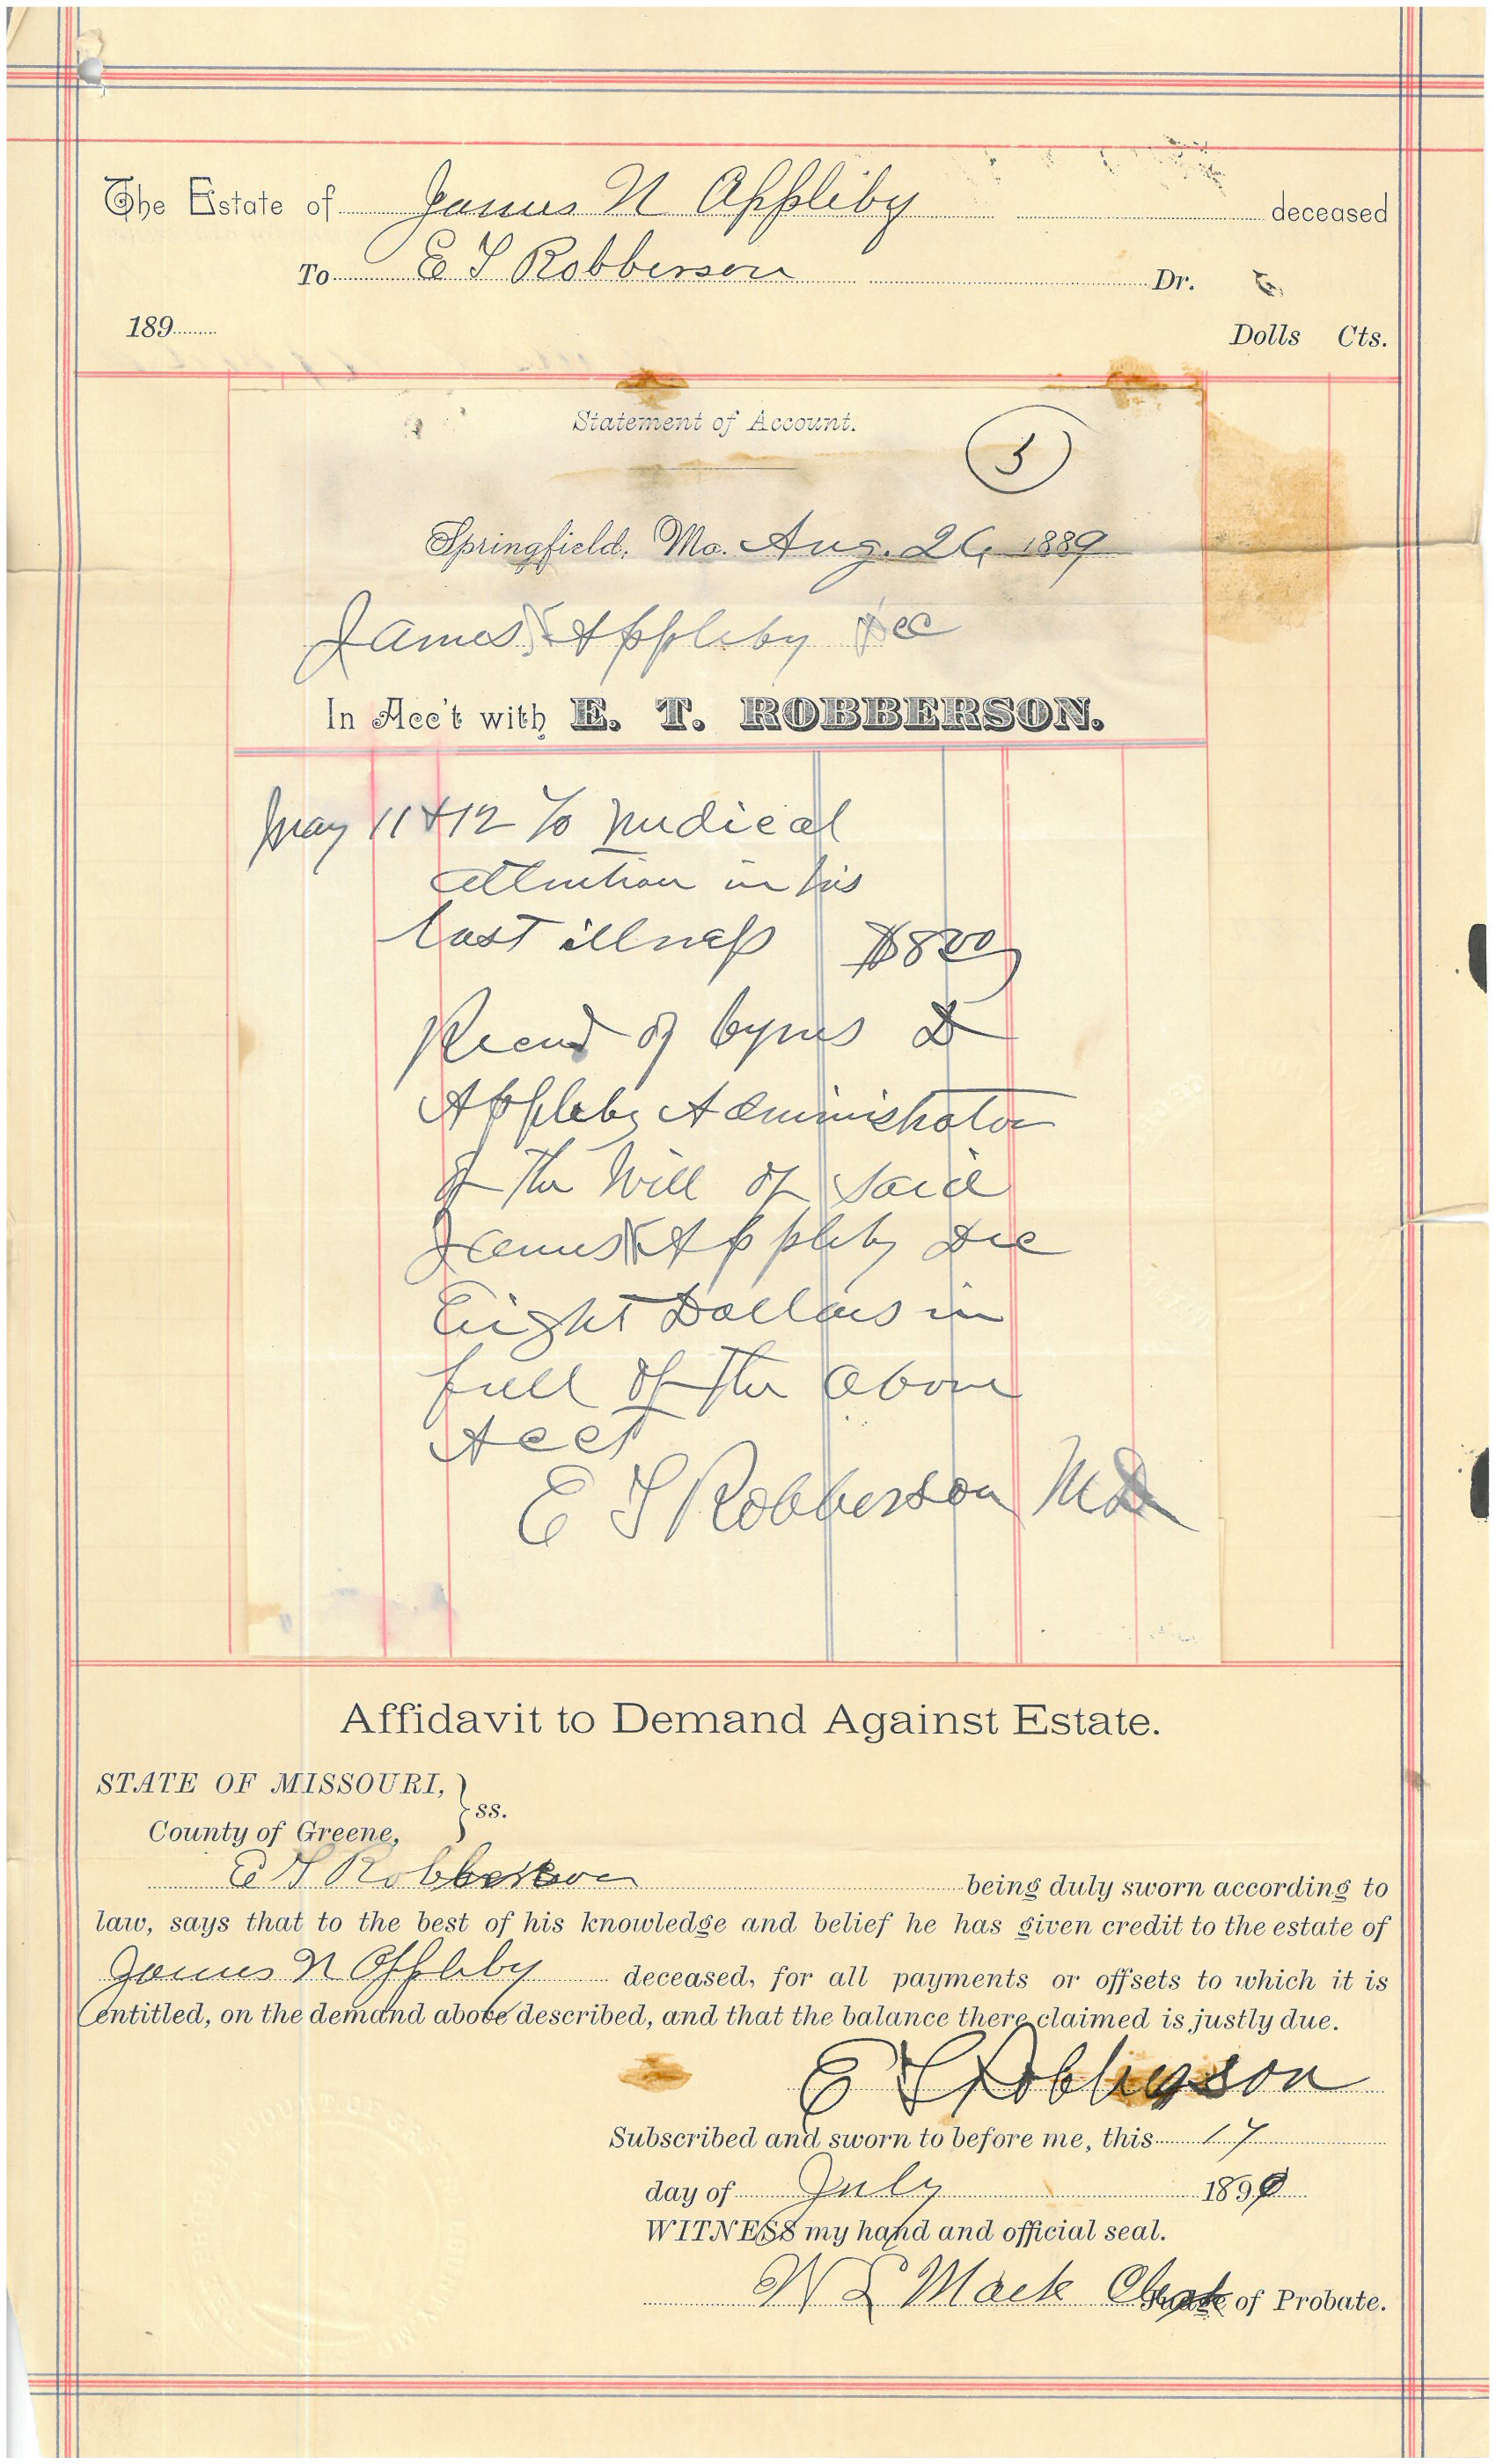 The Estate of James N Appleby deceased
To E T Robberson Dr.
189
Dolls Cts.
Statement of Account.
3
Springfield, Mo. Aug. 26 1889
James N Appleby Dec
In Acc't with E. T. ROBBERSON.
May 11 & 12 To Medical
attention in his
last illness $8 00
Recend of Cyrus D
Appleby Administrator
of the Will of said
James N Appleby Dec
Eight Dollars in
full of the above
Acct
E T Robberson MD
Affidavit to Demand Against Estate.
STATE OF MISSOURI, } ss.
County of Greene,
E T Robberson being duly sworn according to
law, says that to the best of his knowledge and belief he has given credit to the estate of
James N Appleby deceased, for all payments or offsets to which it is
entitled, on the demand above described, and that the balance there claimed is justly due.
E T Robberson
Subscribed and sworn to before me, this 17
day of July 1890
WITNESS my hand and official seal.
W L Mack Clerk of Probate.